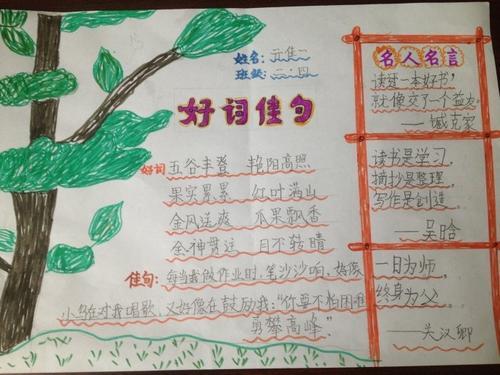 姓名:元佳一
班级:二·四
好词佳句
好词 五谷丰登 艳阳高照
果实累累 红叶满山
金风送爽 瓜果飘香
全神贯注 目不转睛
佳句:每当我做作业时,笔沙沙响,好像
小鸟在对我唱歌,又好像在鼓励我:“你要不怕困难
勇攀高峰”
名人名言
读过一本好书,
就像交了一个益友。
——臧克家
读书是学习,
摘抄是整理,
写作是创造。
——吴晗
一日为师,
终身为父。
——关汉卿